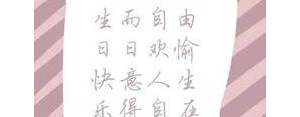 生而自由
日日欢愉
快意人生
乐得自在